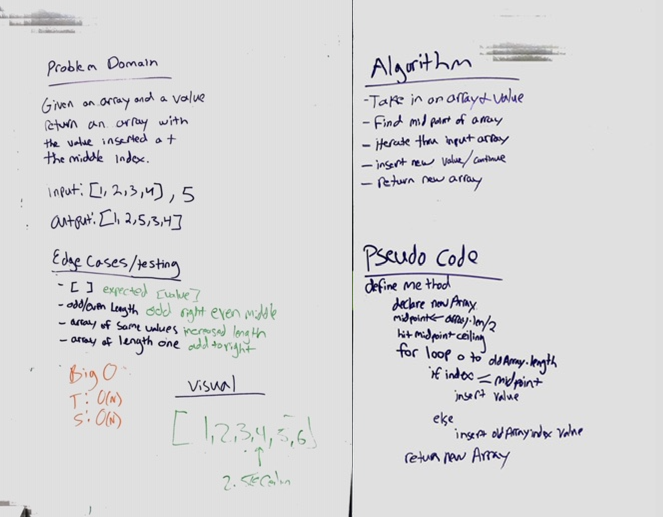 Problem Domain
Given an array and a value
return an array with
the value inserted at
the middle index.
input: [1, 2, 3, 4], 5
output: [1, 2, 5, 3, 4]
Edge Cases/testing
- [ ] expected [value]
- odd/even length odd right even middle
- array of same values increased length
- array of length one add to right
Big O
T: O(N)
S: O(N)
visual
[1, 2, 3, 4, 5, 6]
2.5
Algorithm
- Take in an array & value
- Find mid point of array
- iterate thru input array
- insert new value/continue
- return new array
Pseudo Code
define method
declare new Array
midpoint ← array.len/2
midpoint ceiling
for loop 0 to oldArray.length
if index = midpoint
insert value
else
insert oldArray index value
return new Array